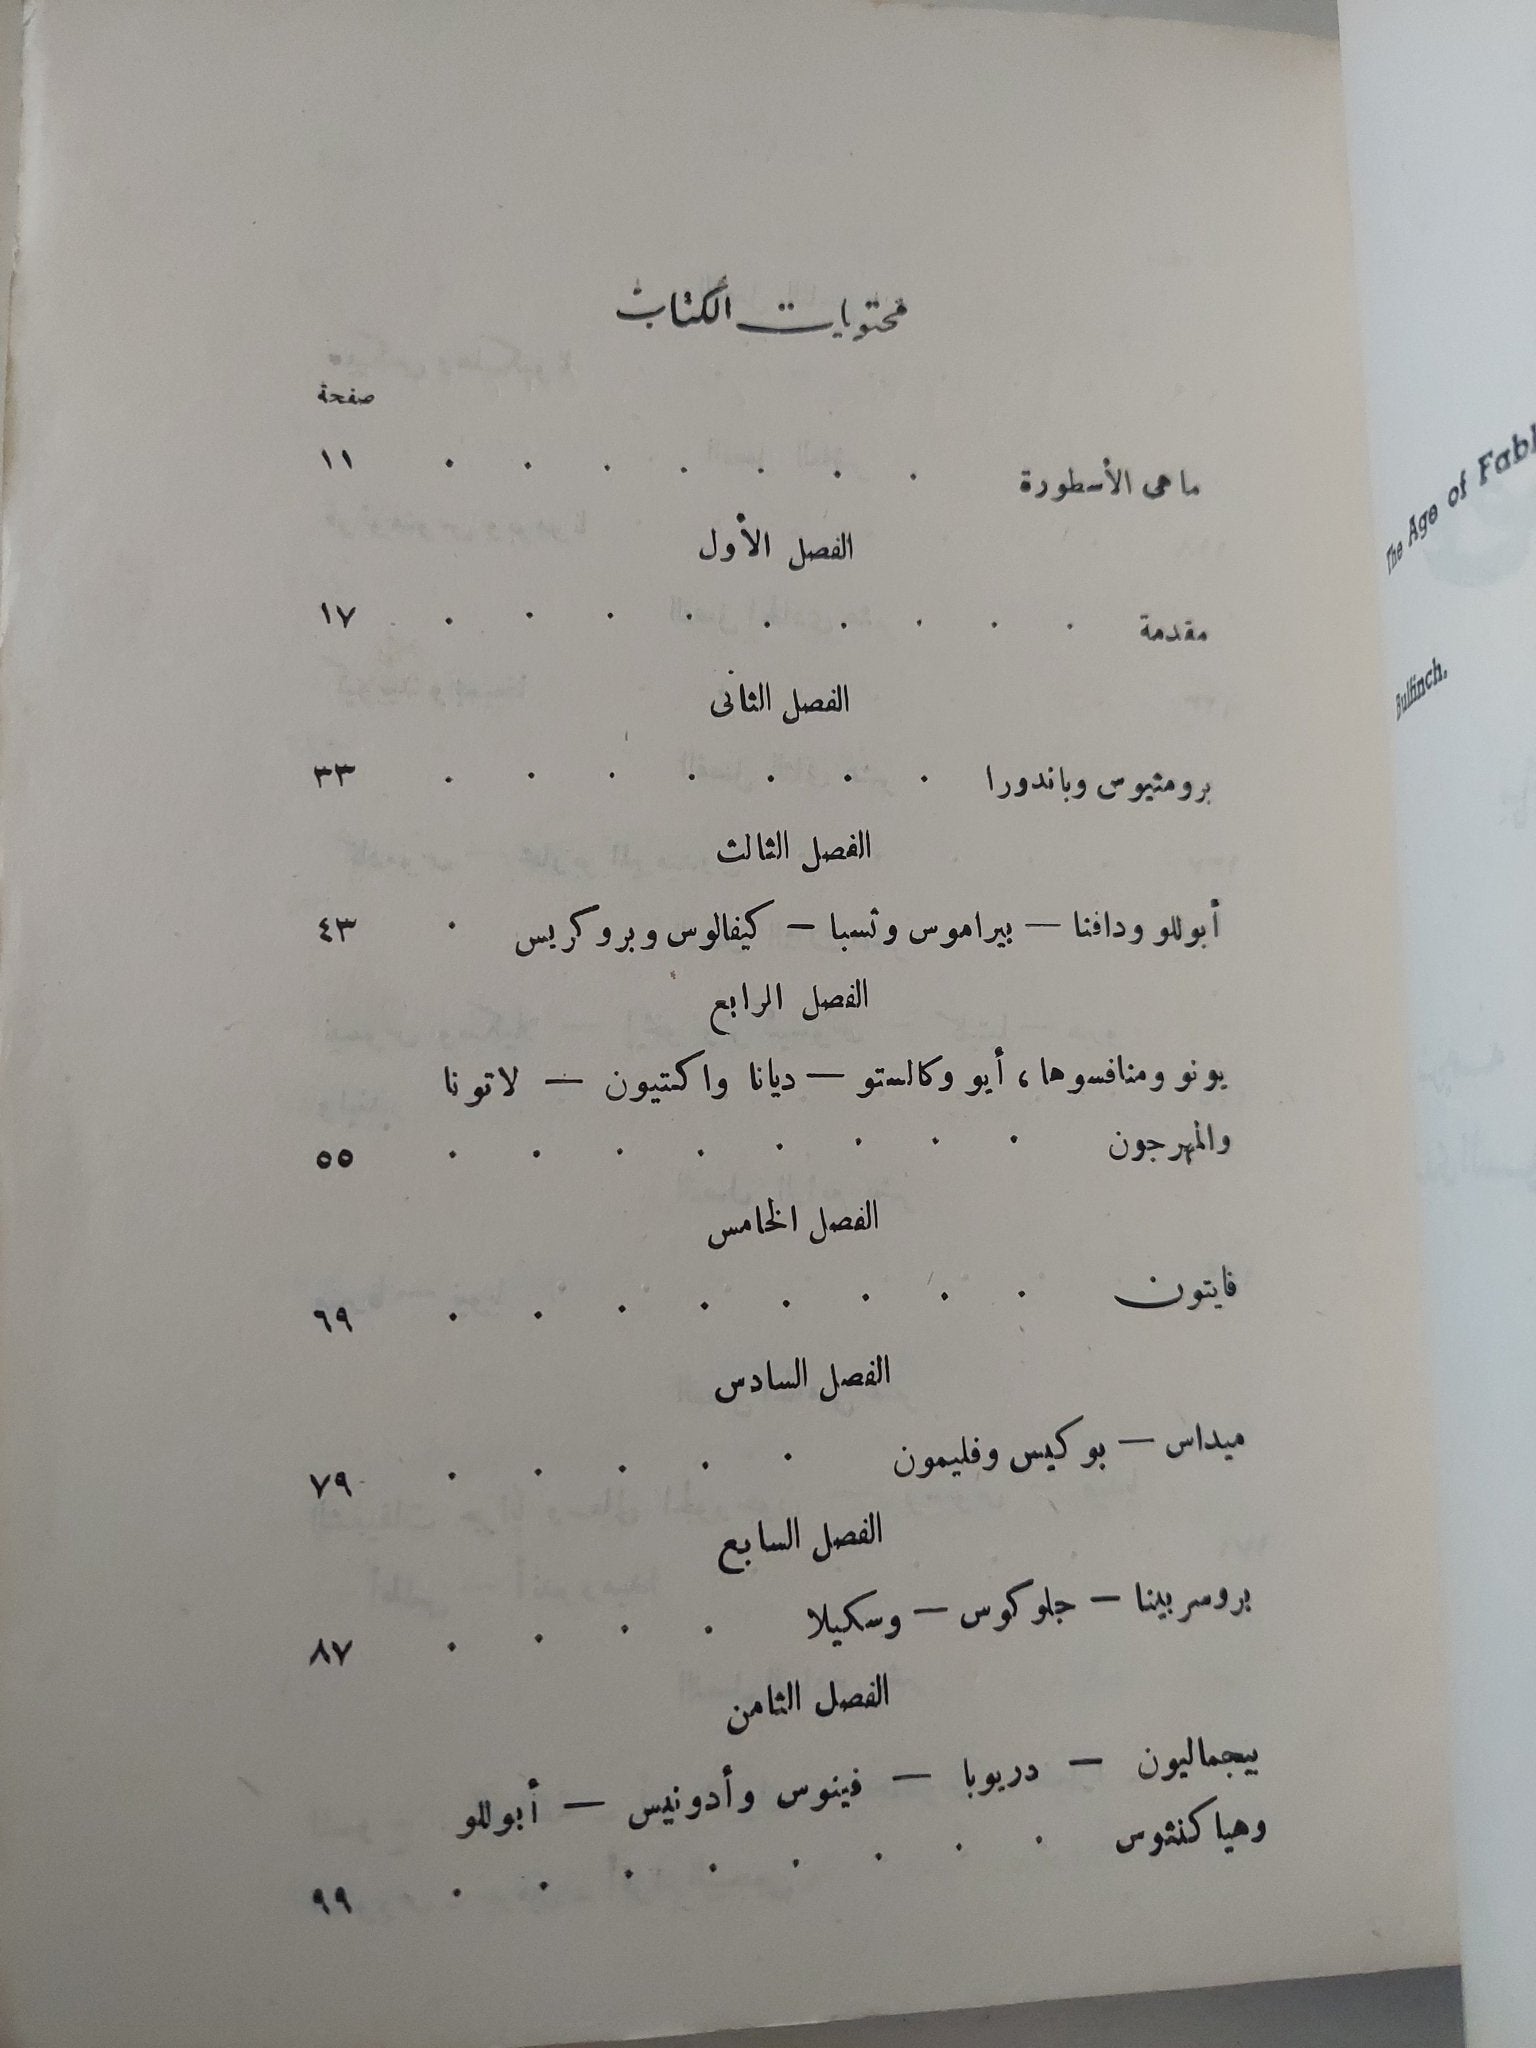 محتويات الكتاب
صفحة
ما هى الأسطورة . . . . . . . ١١
الفصل الأول
مقدمة . . . . . . . . . ١٧
الفصل الثانى
برومثيوس وباندورا . . . . . . . ٣٣
الفصل الثالث
أبوللو ودافنا — بيراموس وثسبا — كيفالوس وبروكريس . ٤٣
الفصل الرابع
يونو ومنافسوها، أيو وكالستو — ديانا واكتيون — لاتونا
والمهرجون . . . . . . . . ٥٥
الفصل الخامس
فايتون . . . . . . . . ٦٩
الفصل السادس
ميداس — بوكيس وفليمون . . . . . ٧٩
الفصل السابع
بروسربينا — جلوكوس — وسكيلا . . . . ٨٧
الفصل الثامن
بيجماليون — دريوبا — فينوس وأدونيس — أبوللو
وهياكنثوس . . . . . . . . ٩٩
The Age of
Bulfinch.